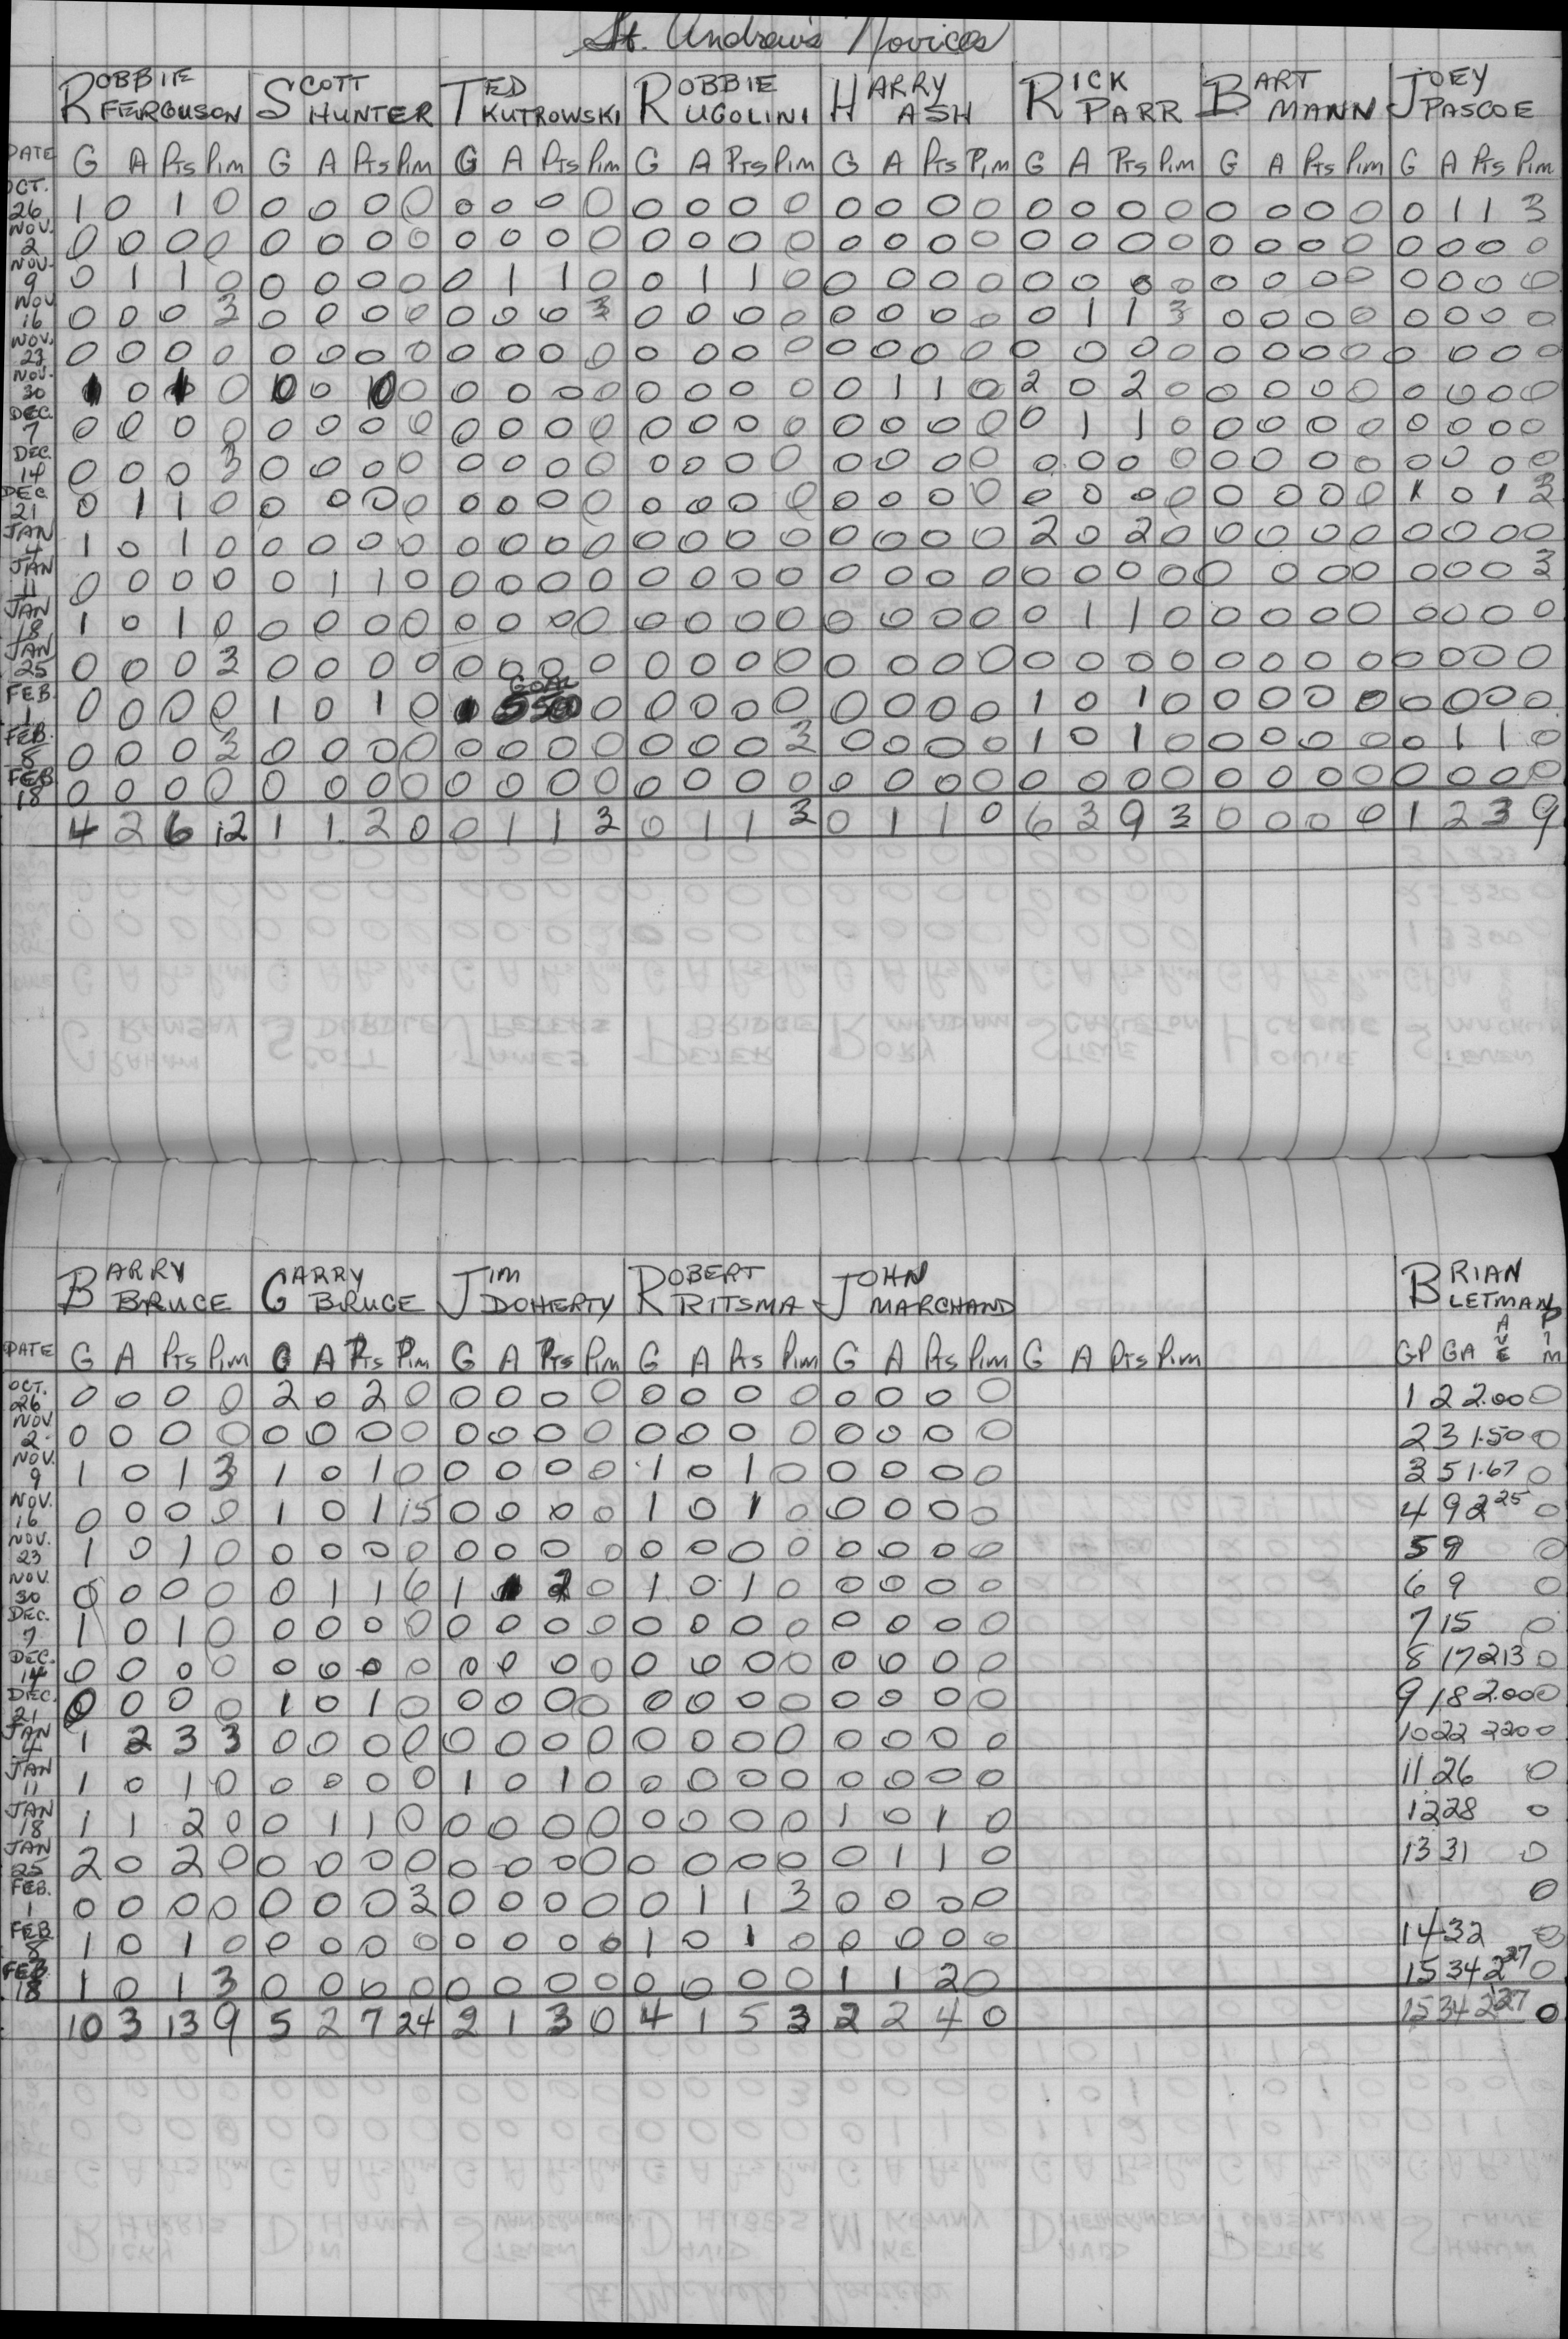 St. Andrew's Novices
ROBBIE FERGUSON SCOTT HUNTER TED KUTROWSKI ROBBIE UGOLINI HARRY ASH RICK PARR BART MANN JOEY PASCOE
DATE G A Pts Pim G A Pts Pim G A Pts Pim G A Pts Pim G A Pts Pim G A Pts Pim G A Pts Pim G A Pts Pim
OCT. 26 1 0 1 0 0 0 0 0 0 0 0 0 0 0 0 0 0 0 0 0 0 0 0 0 0 0 0 0 0 1 1 3
NOV. 2 0 0 0 0 0 0 0 0 0 0 0 0 0 0 0 0 0 0 0 0 0 0 0 0 0 0 0 0 0 0 0 0
NOV. 9 0 1 1 0 0 0 0 0 0 1 1 0 0 1 1 0 0 0 0 0 0 0 0 0 0 0 0 0 0 0 0 0
NOV 16 0 0 0 3 0 0 0 0 0 0 0 3 0 0 0 0 0 0 0 0 0 1 1 3 0 0 0 0 0 0 0 0
NOV. 23 0 0 0 0 0 0 0 0 0 0 0 0 0 0 0 0 0 0 0 0 0 0 0 0 0 0 0 0 0 0 0 0
NOV. 30 1 0 1 0 0 0 0 0 0 0 0 0 0 0 0 0 0 1 1 0 2 0 2 0 0 0 0 0 0 0 0 0
DEC. 7 0 0 0 0 0 0 0 0 0 0 0 0 0 0 0 0 0 0 0 0 0 1 1 0 0 0 0 0 0 0 0 0
DEC. 14 0 0 0 3 0 0 0 0 0 0 0 0 0 0 0 0 0 0 0 0 0 0 0 0 0 0 0 0 0 0 0 0
DEC. 21 0 1 1 0 0 0 0 0 0 0 0 0 0 0 0 0 0 0 0 0 0 0 0 0 0 0 0 0 1 0 1 3
JAN 4 1 0 1 0 0 0 0 0 0 0 0 0 0 0 0 0 0 0 0 0 2 0 2 0 0 0 0 0 0 0 0 0
JAN 11 0 0 0 0 0 1 1 0 0 0 0 0 0 0 0 0 0 0 0 0 0 0 0 0 0 0 0 0 0 0 0 3
JAN 18 1 0 1 0 0 0 0 0 0 0 0 0 0 0 0 0 0 0 0 0 0 1 1 0 0 0 0 0 0 0 0 0
JAN 25 0 0 0 3 0 0 0 0 0 0 0 0 0 0 0 0 0 0 0 0 0 0 0 0 0 0 0 0 0 0 0 0
GOAL
FEB. 1 0 0 0 0 1 0 1 0 1 5 50 0 0 0 0 0 0 0 0 0 1 0 1 0 0 0 0 0 0 0 0 0
FEB. 8 0 0 0 3 0 0 0 0 0 0 0 0 0 0 0 3 0 0 0 0 1 0 1 0 0 0 0 0 0 1 1 0
FEB 18 0 0 0 0 0 0 0 0 0 0 0 0 0 0 0 0 0 0 0 0 0 0 0 0 0 0 0 0 0 0 0 0
4 2 6 12 1 1 2 0 0 1 1 3 0 1 1 3 0 1 1 0 6 3 9 3 0 0 0 0 1 2 3 9
BARRY BRUCE GARRY BRUCE JIM DOHERTY ROBERT RITSMA JOHN MARCHAND BRIAN LETMAN
DATE G A Pts Pim G A Pts Pim G A Pts Pim G A Pts Pim G A Pts Pim G A Pts Pim GP GA AVE PIM
OCT. 26 0 0 0 0 2 0 2 0 0 0 0 0 0 0 0 0 0 0 0 0 1 2 2.00 0
NOV 2 0 0 0 0 0 0 0 0 0 0 0 0 0 0 0 0 0 0 0 0 2 3 1.50 0
NOV. 9 1 0 1 3 1 0 1 0 0 0 0 0 1 0 1 0 0 0 0 0 3 5 1.67 0
NOV. 16 0 0 0 0 1 0 1 15 0 0 0 0 1 0 1 0 0 0 0 0 4 9 2 25 0
NOV. 23 1 0 1 0 0 0 0 0 0 0 0 0 0 0 0 0 0 0 0 0 5 9 0
NOV. 30 0 0 0 0 0 1 1 6 1 1 2 0 1 0 1 0 0 0 0 0 6 9 0
DEC. 7 1 0 1 0 0 0 0 0 0 0 0 0 0 0 0 0 0 0 0 0 7 15 0
DEC. 14 0 0 0 0 0 0 0 0 0 0 0 0 0 0 0 0 0 0 0 0 8 17 213 0
DEC. 21 0 0 0 0 1 0 1 0 0 0 0 0 0 0 0 0 0 0 0 0 9 18 2.00 0
JAN 4 1 2 3 3 0 0 0 0 0 0 0 0 0 0 0 0 0 0 0 0 10 22 220 0
JAN 11 1 0 1 0 0 0 0 0 1 0 1 0 0 0 0 0 0 0 0 0 11 26 0
JAN 18 1 1 2 0 0 1 1 0 0 0 0 0 0 0 0 0 1 0 1 0 12 28 0
JAN 25 2 0 2 0 0 0 0 0 0 0 0 0 0 0 0 0 0 1 1 0 13 31 0
FEB. 1 0 0 0 0 0 0 0 3 0 0 0 0 0 1 1 3 0 0 0 0 0
FEB. 8 1 0 1 0 0 0 0 0 0 0 0 0 1 0 1 0 0 0 0 0 14 32 0
FEB 18 1 0 1 3 0 0 0 0 0 0 0 0 0 0 0 0 1 1 2 0 15 34 2 27 0
10 3 13 9 5 2 7 24 2 1 3 0 4 1 5 3 2 2 4 0 15 34 227 0